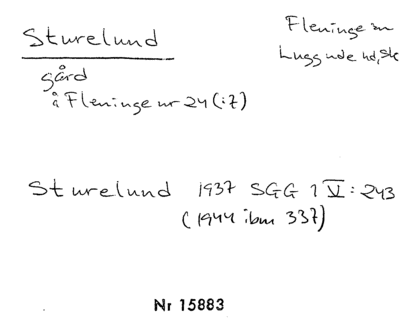 Sturelund
Fleninge sn
Luggude hd, Sk
gård
å Fleninge nr 24 (:7)
Sturelund 1937 SGG 1 V: 243
(1944 ibm 337)
Nr 15883